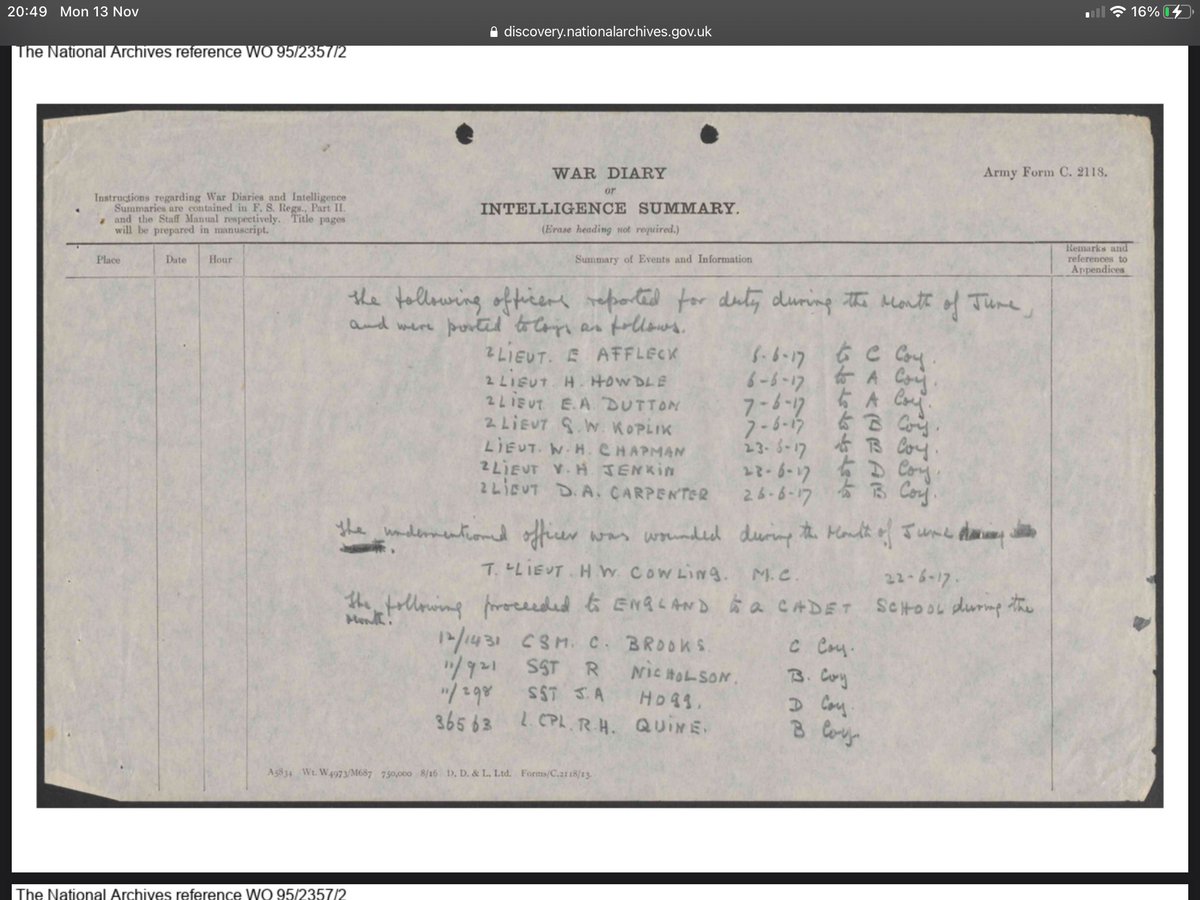 20:49 Mon 13 Nov
16%
discovery.nationalarchives.gov.uk
The National Archives reference WO 95/2357/2
WAR DIARY
or
INTELLIGENCE SUMMARY.
(Erase heading not required.)
Army Form C. 2118.
Instructions regarding War Diaries and Intelligence
Summaries are contained in F. S. Regs., Part II.
and the Staff Manual respectively. Title pages
will be prepared in manuscript.
Place Date Hour Summary of Events and Information Remarks and references to Appendices
The following officers reported for duty during the Month of June,
and were posted to Coys as follows.
2 LIEUT. E AFFLECK 6-6-17 to C Coy.
2 LIEUT. H. HOWDLE 6-6-17 to A Coy.
2 LIEUT E.A. DUTTON 7-6-17 to A Coy.
2 LIEUT G.W. KOPLIK 7-6-17 to B Coy.
LIEUT. W.H. CHAPMAN 23-6-17 to B Coy.
2 LIEUT V.H. JENKIN 23-6-17 to D Coy.
2 LIEUT D.A. CARPENTER 26-6-17 to B Coy.
The undermentioned officer was wounded during the Month of June
T. LIEUT. H W. COWLING. M.C. 22-6-17.
The following proceeded to ENGLAND to a CADET SCHOOL during the
Month:
12/1431 CSM. C. BROOKS. C Coy.
11/921 SGT R NICHOLSON. B. Coy
11/298 SGT J.A HOGG. D Coy.
36563 L. CPL. R.H. QUINE. B Coy
A5834 Wt. W4973/M687 750,000 8/16 D. D. & L. Ltd. Forms/C.2118/13.
The National Archives reference WO 95/2357/2